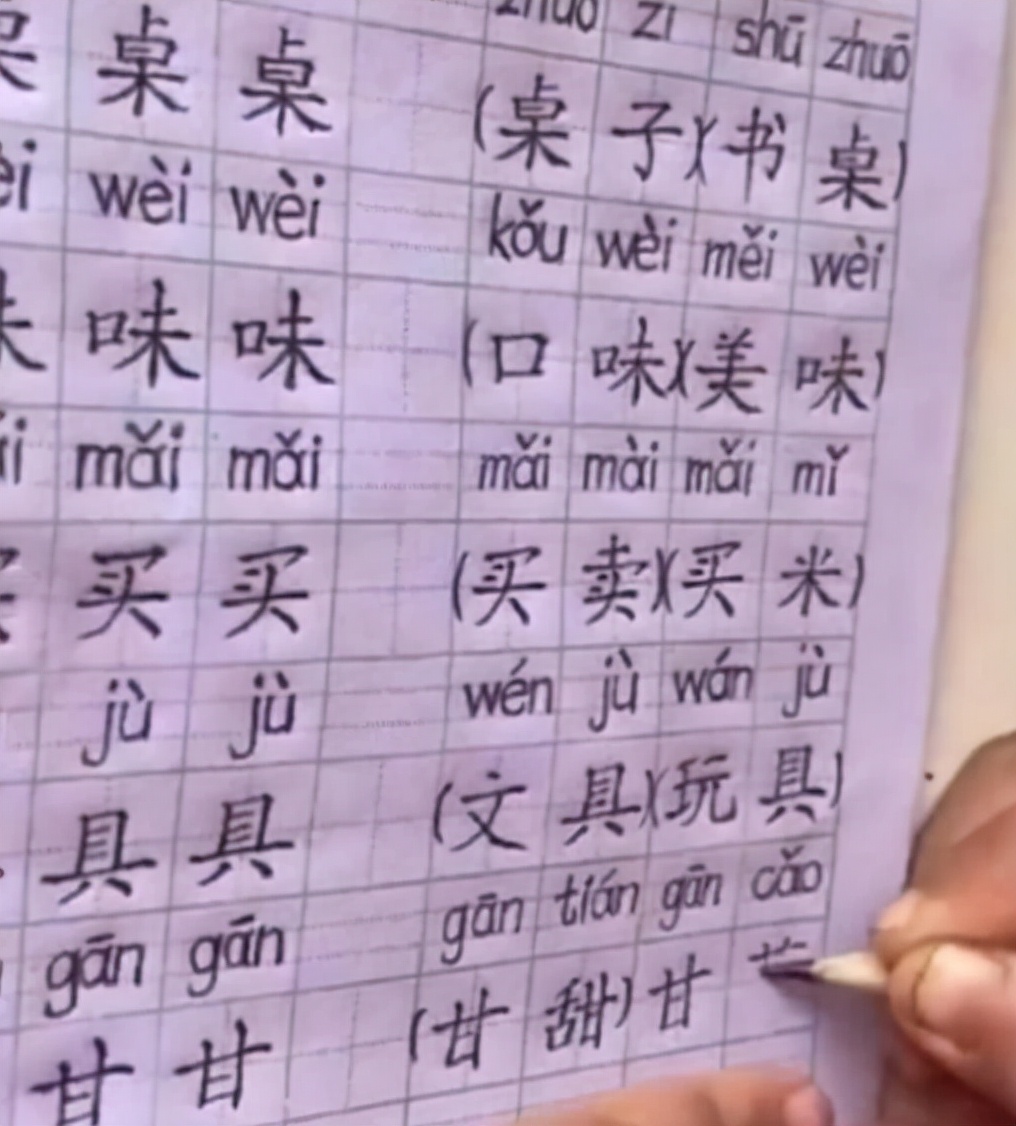 zi shū zhuō
桌 桌 (桌 子)(书 桌)
wèi wèi kǒu wèi měi wèi
味 味 (口 味)(美 味)
mǎi mǎi mǎi mài mǎi mǐ
买 买 (买 卖)(买 米)
jù jù wén jù wán jù
具 具 (文 具)(玩 具)
gān gān gān tián gān cǎo
甘 甘 (甘 甜) 甘